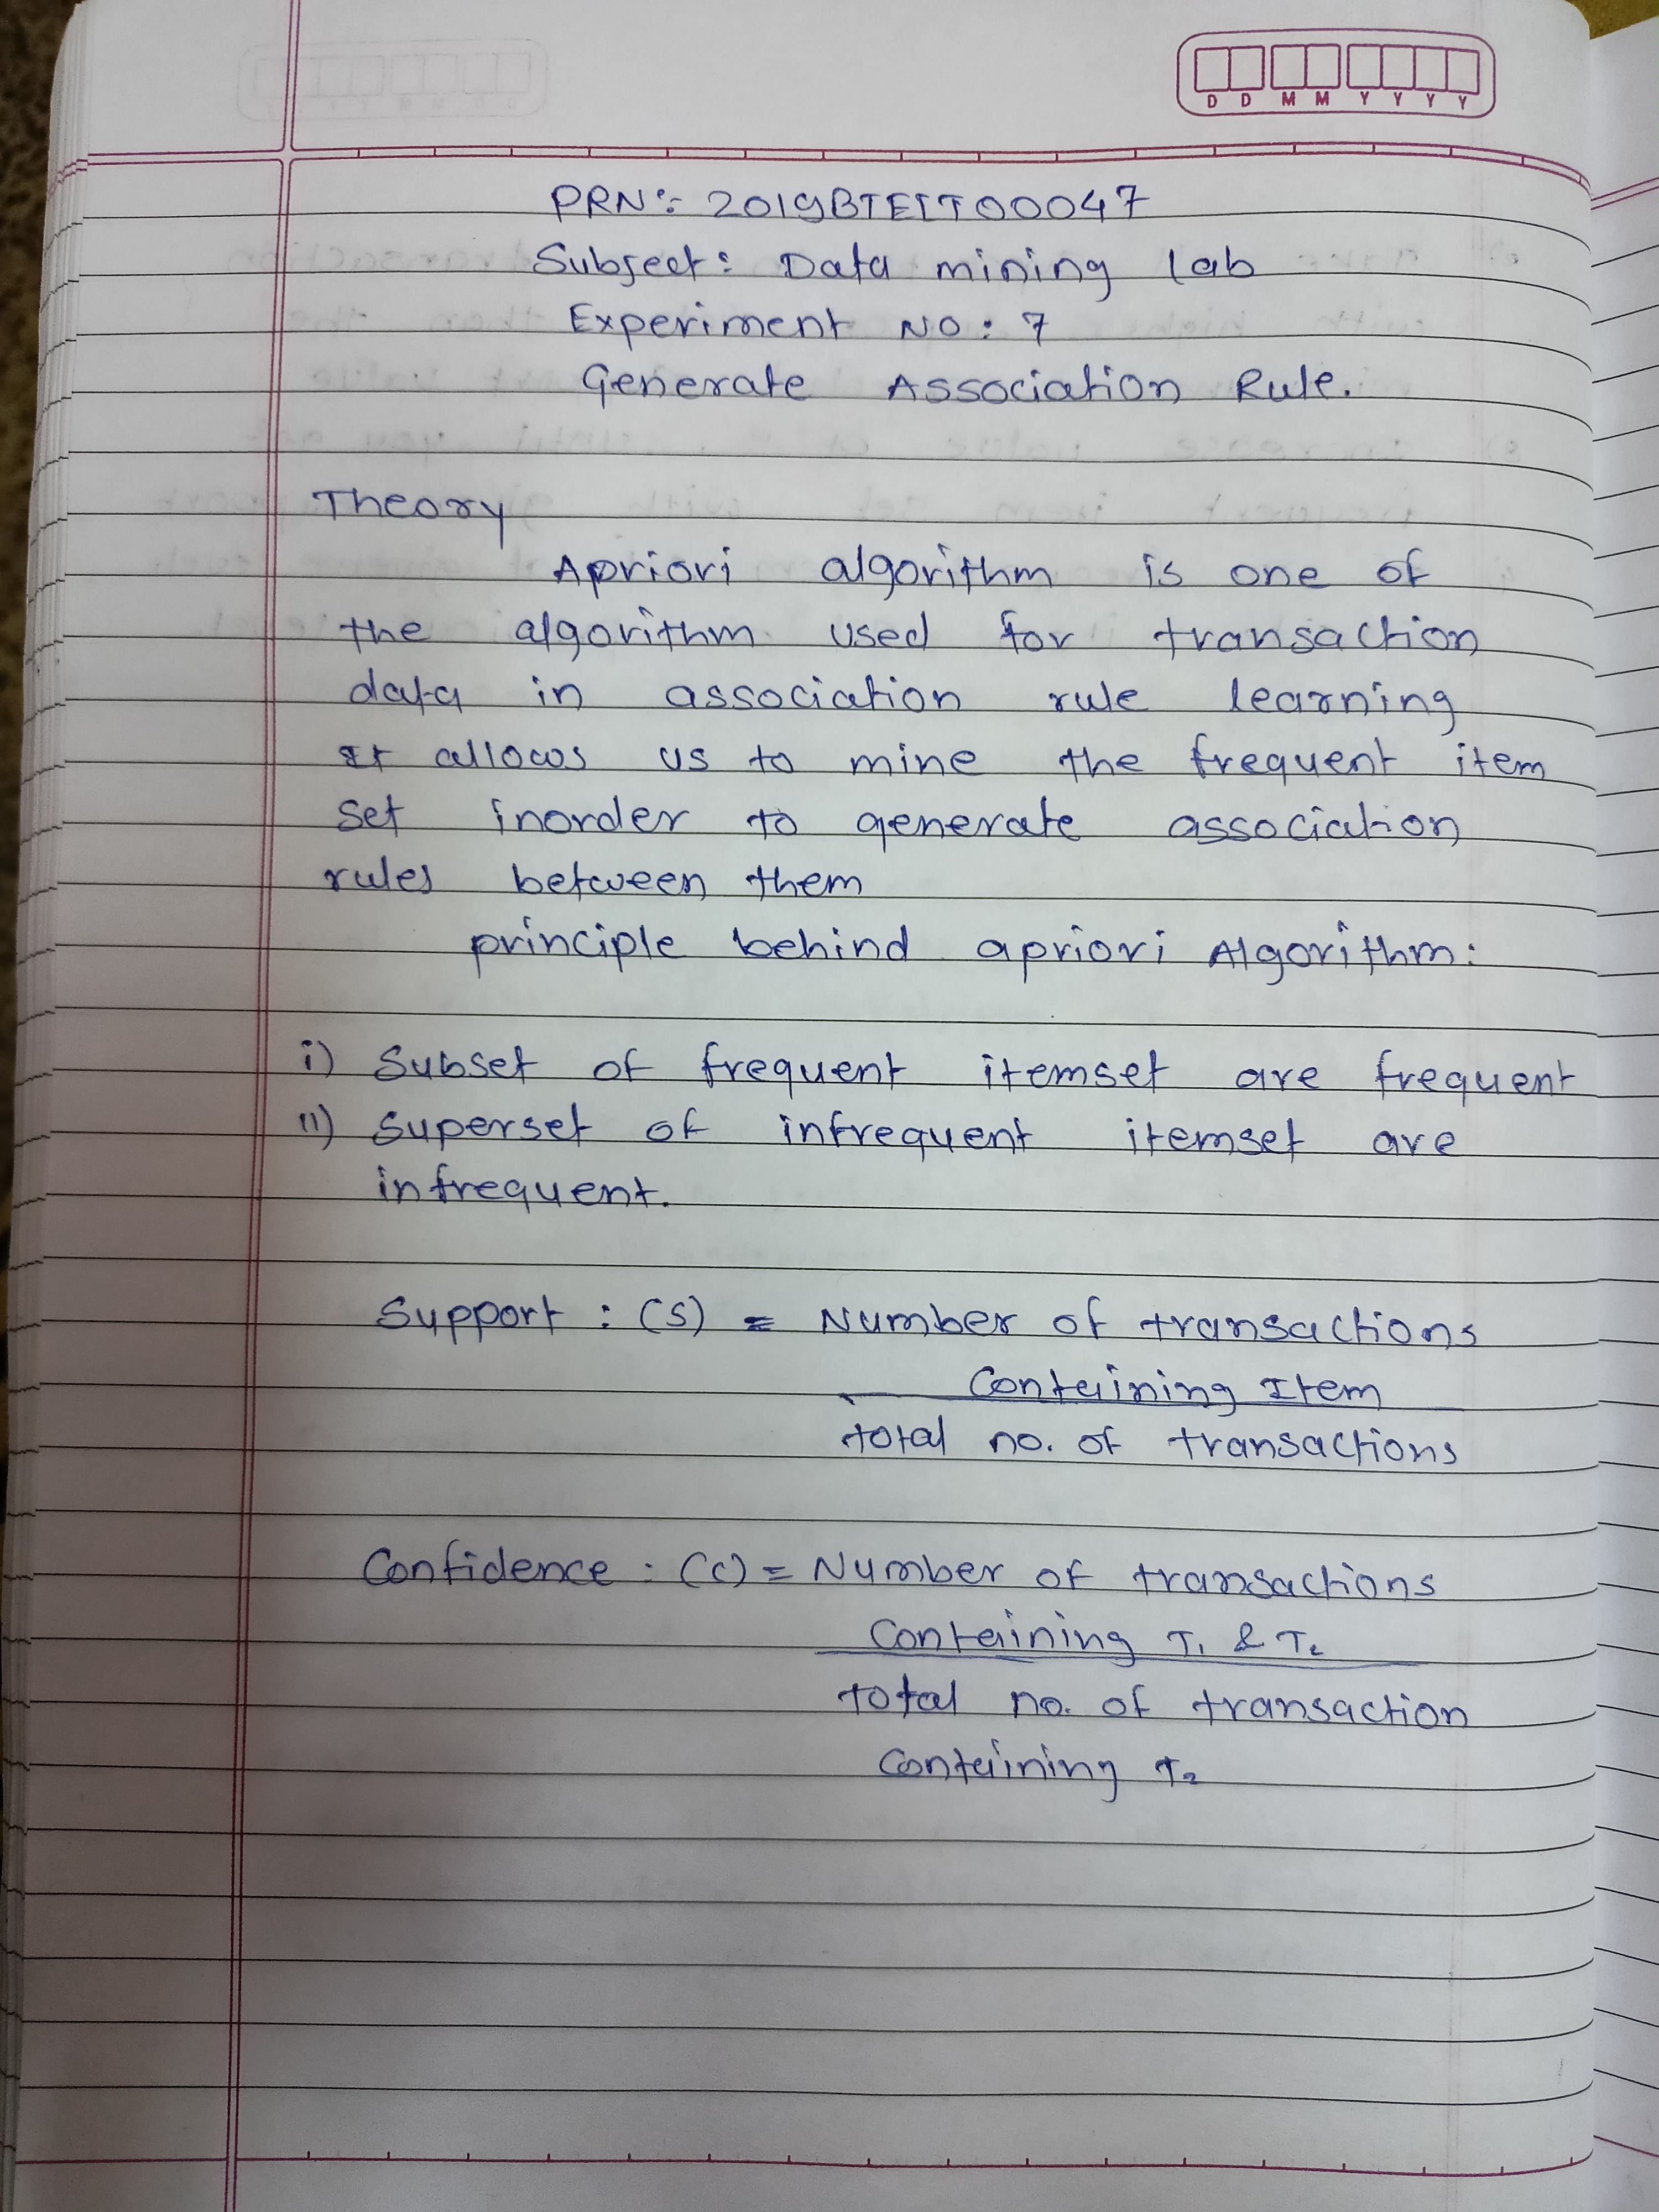 D D M M Y Y Y Y
PRN:- 2019BTEIT00047
Subject: Data mining lab
Experiment No: 7
Generate Association Rule.
Theory
Apriori algorithm is one of
the algorithm used for transaction
data in association rule learning
It allows us to mine the frequent item
set inorder to generate association
rules between them
principle behind apriori Algorithm:
i) Subset of frequent itemset are frequent
ii) Superset of infrequent itemset are
infrequent.
Support : (S) = Number of transactions
Containing Item
total no. of transactions
Confidence : (C) = Number of transactions
Containing T₁ & T₂
total no. of transaction
Containing T₂